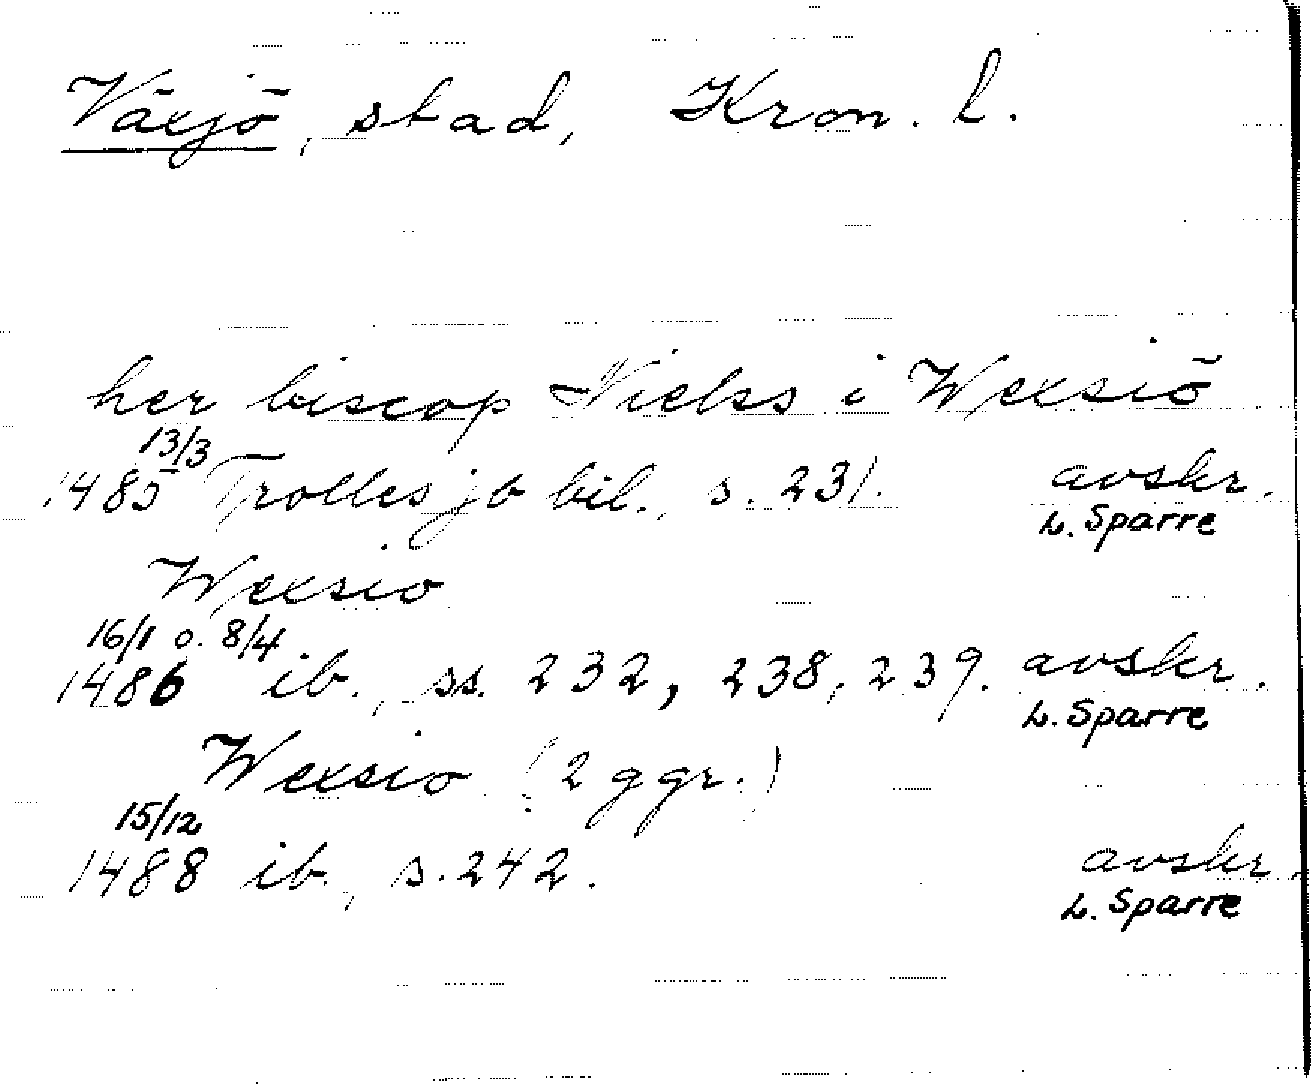 Växjö, stad, Kron. l.
her biscop Nielss i Wexsiö
13/3
1485 Trolles jb bil., s. 231. avskr.
L. Sparre
Wexsio
16/1 o. 8/4
1486 ib., ss. 232, 238, 239. avskr.
L. Sparre
Wexsio (2 ggr.)
15/12
1488 ib., s. 242. avskr.
L. Sparre